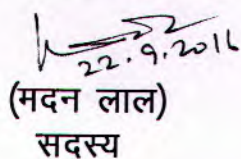 22.9.2016
(मदन लाल)
सदस्य